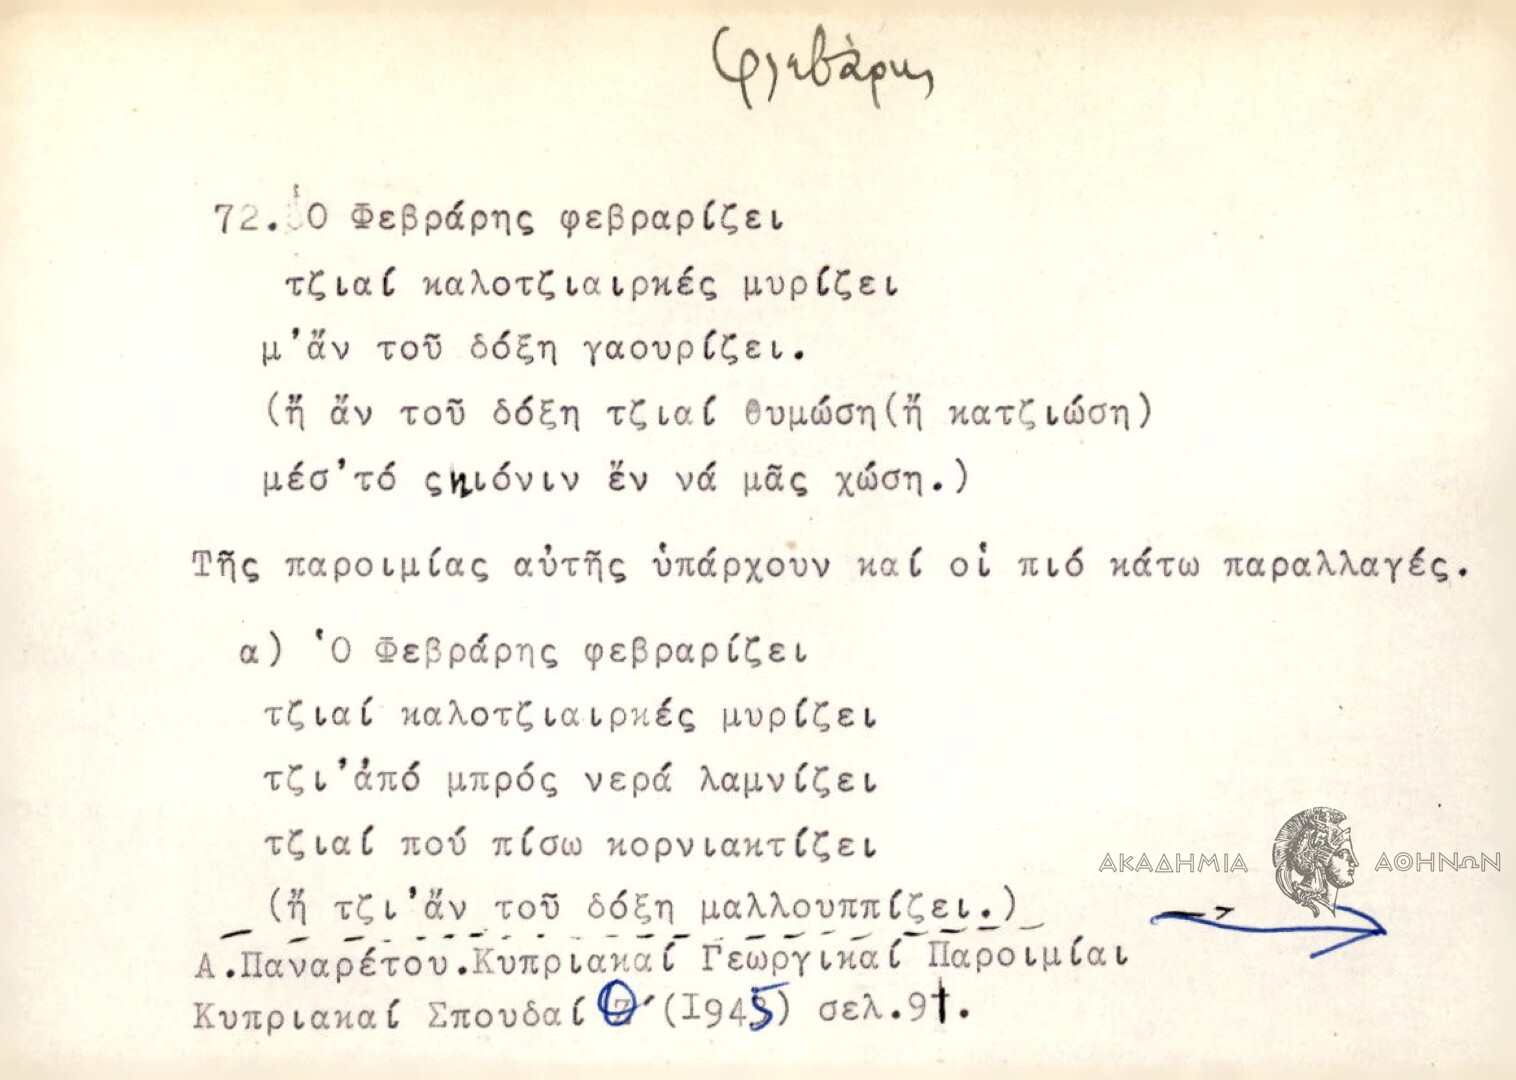 Φλεβάρης
72. Ὁ Φεβράρης φεβραρίζει
τζιαί καλοτζιαιρκές μυρίζει
μ'ἄν τοῦ δόξη γαουρίζει.
(ἤ ἄν τοῦ δόξη τζιαί θυμώση(ἤ κατζιώση)
μέσ'τό ςκιόνιν ἔν νά μᾶς χώση.)
Τῆς παροιμίας αὐτῆς ὑπάρχουν καί οἱ πιό κάτω παραλλαγές.
α) Ὁ Φεβράρης φεβραρίζει
τζιαί καλοτζιαιρκές μυρίζει
τζι'ἀπό μπρός νερά λαμνίζει
τζιαί πού πίσω κορνιακτίζει
(ἤ τζι'ἄν τοῦ δόξη μαλλουππίζει.)
ΑΚΑΔΗΜΙΑ ΑΘΗΝΩΝ
Α.Παναρέτου.Κυπριακαί Γεωργικαί Παροιμίαι
Κυπριακαί Σπουδαί (1945) σελ.